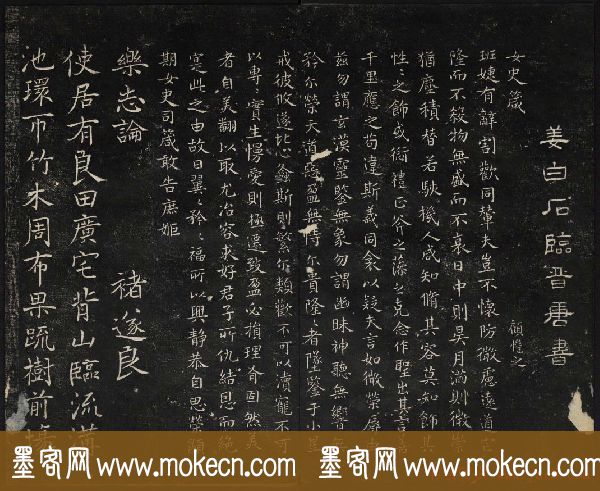 姜白石臨晉唐書
顧愷之
女史箴
班婕有辭割歡同輦夫豈不懷防微慮遠道亡
隆而不殺物無盛而不衰日中則昃月滿則微崇
猶塵積替若駭機人咸知脩其容莫知飾其
性〻之飾或衍禮正斧之藻之克念作聖出其言善
千里應之苟違斯義同衾以疑夫言如微榮辱由
茲勿謂玄漠靈鑒無象勿謂幽昧神聽無響無
矜尔榮天道惡盈無恃尔貴隆〻者墜鑒于小星
戒彼攸遂比心螽斯則繁尔類歡不可以瀆寵不可
以專〻實生慢愛則極遷致盈必損理有固然美
者自美翩以取尤冶容求好君子所仇結恩而絕
寔此之由故曰翼〻矜〻福所以興静恭自思榮顯
期女史司箴敢告庶姬
樂志論
褚遂良
使居有良田廣宅背山臨流溝
池環帀竹木周布果蔬樹前場
墨客网 www.mokecn.com 墨客网 www.mokecn.com